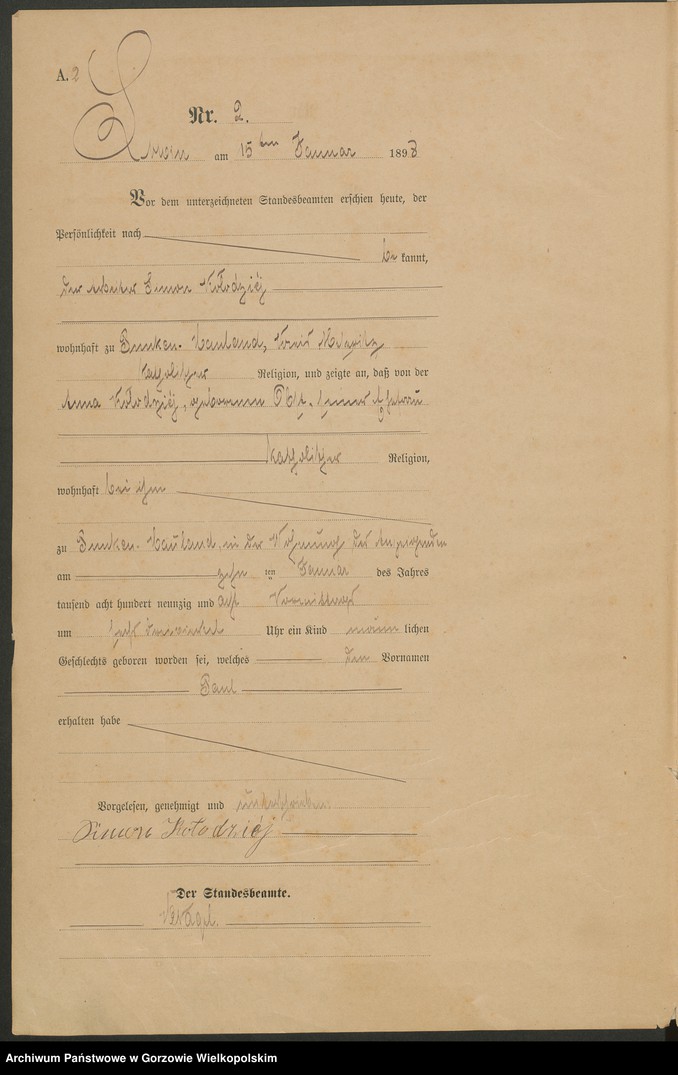 A. 2
Nr. 2.
am 15ten Januar 1898
Vor dem unterzeichneten Standesbeamten erschien heute, der
Persönlichkeit nach
be kannt,
der Arbeiter Simon Kołodziéj
wohnhaft zu Hauland, Kreis Meseritz
katholischer Religion, und zeigte an, daß von der
Anna Kołodziéj, geborenen seiner Ehefrau
katholischer Religion,
wohnhaft bei ihm
zu Hauland, in der Wohnung des Anzeigenden
am zehn ten Januar des Jahres
tausend acht hundert neunzig und acht Vormittags
um Uhr ein Kind männ lichen
Geschlechts geboren worden sei, welches den Vornamen
Paul
erhalten habe
Vorgelesen, genehmigt und unterschrieben
Simon Kołodziéj
Der Standesbeamte.
Archiwum Państwowe w Gorzowie Wielkopolskim